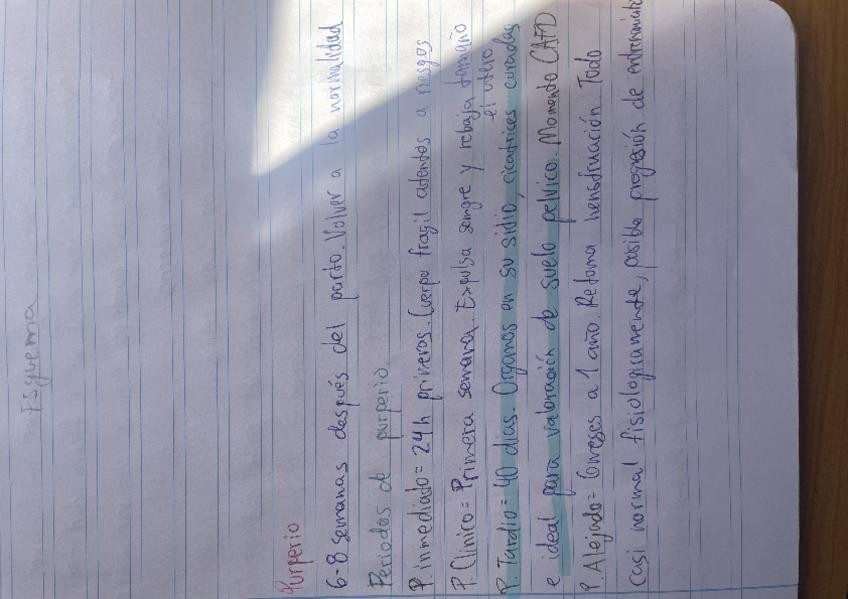 Esquema
Purperio
6-8 semanas después del parto. Volver a la normalidad
Periodos de purperio.
P. inmediato = 24h primeras. Cuerpo fragil atentos a riesgos
P. Clinico = Primera semana. Expulsa sangre y rebaja tamaño
el utero
P. Tardio = 40 dias. Organos en su sidio, cicatrices curadas
e ideal para valoración de suelo pelvico. Momento CAFD
P. Alejado = 6 meses a 1 año. Retoma menstruación Todo
casi normal fisiologicamente, posible progresión de entrenamiento